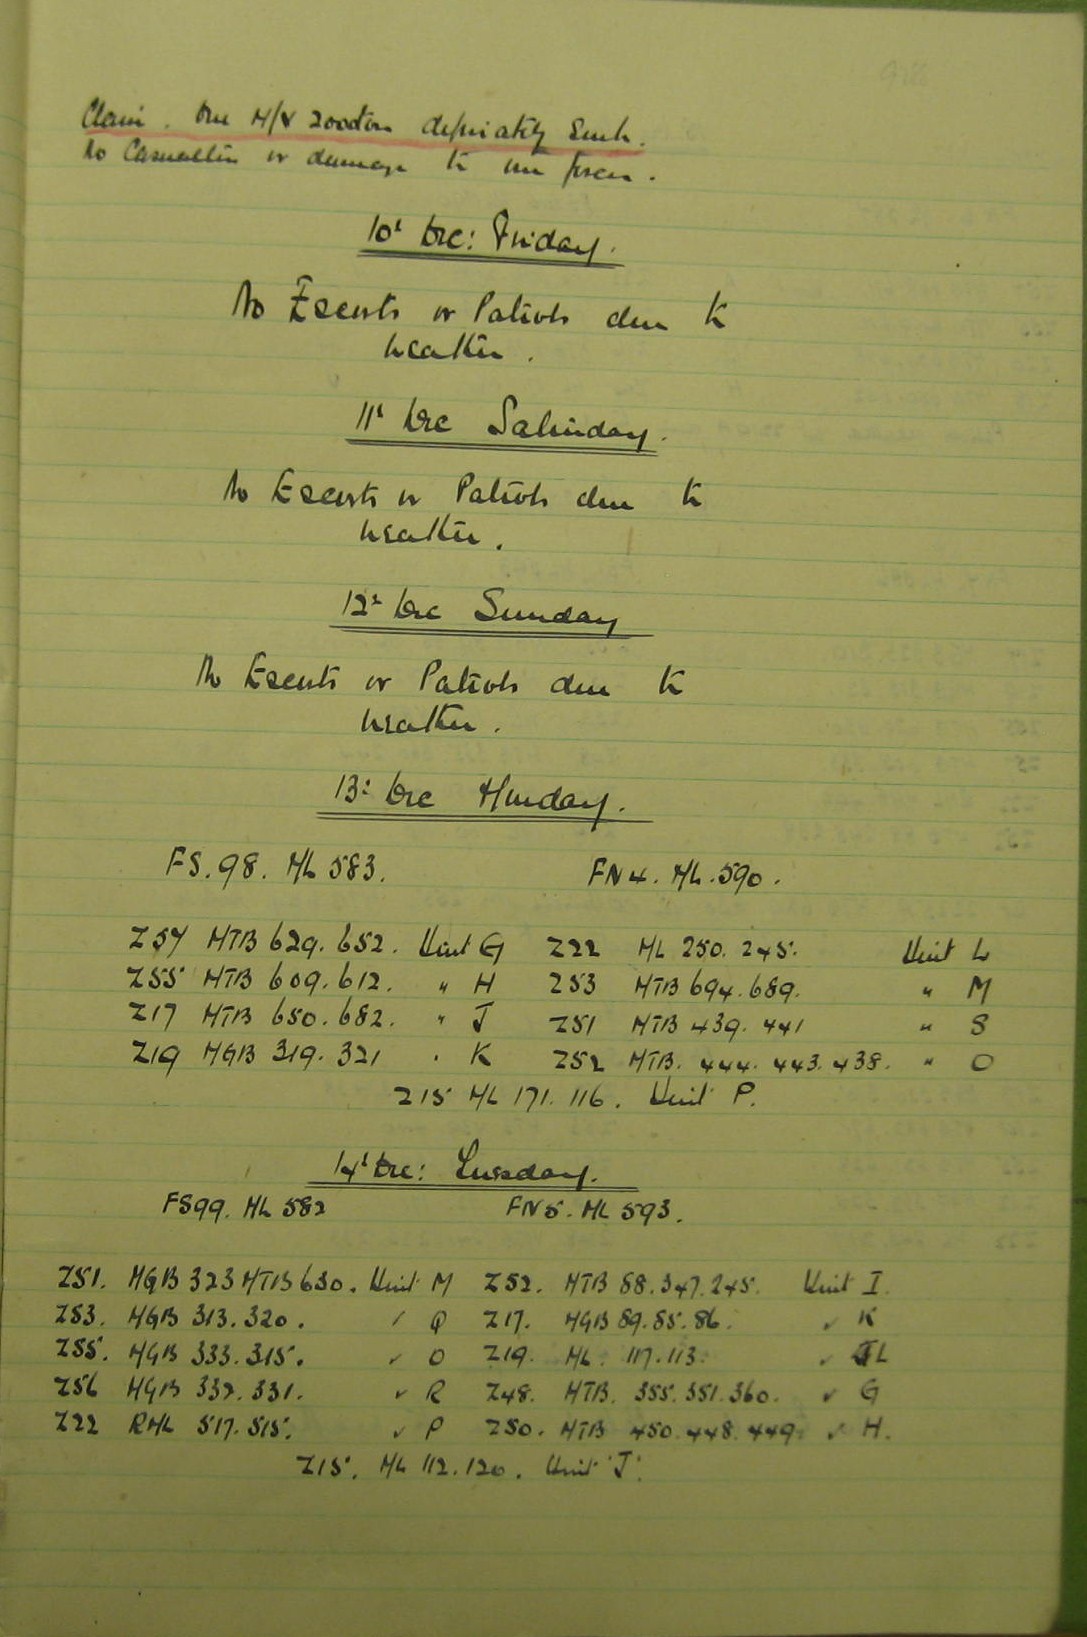 Claim. One M/V 2000 tons definitely sunk.
No Casualties or damage to our forces.
10th Dec: Friday.
No Escorts or Patrols due to
weather.
11th Dec Saturday.
No Escorts or Patrols due to
weather.
12th Dec Sunday
No Escorts or Patrols due to
weather.
13th Dec Monday.
FS.98. ML 583. FN 4. ML.590.
Z54 MTB 629. 652. Unit G Z22 ML 250. 245. Unit L
Z55 MTB 609. 612. " H Z53 MTB 694. 689. " M
Z17 MTB 650. 682. " J Z51 MTB 439. 441 " S
Z19 MGB 319. 321 " K Z52 MTB. 444. 443. 438. " O
Z15 ML 171. 116. Unit P.
14th Dec: Tuesday.
FS99. ML 582 FN5. ML 593.
Z51. MGB 323 MTB 630. Unit M Z52. MTB 88. 347. 245. Unit I.
Z53. MGB 313. 320. " Q Z17. MGB 89. 85. 86. " K
Z55. MGB 333. 315. " O Z19. ML. 117. 113. " L
Z56 MGB 332. 331. " R Z48. MTB. 355. 351. 360. " G
Z22 RML 517. 515. " P Z50. MTB 450. 448. 449 " H.
Z15. ML 112. 120. Unit 'J'.